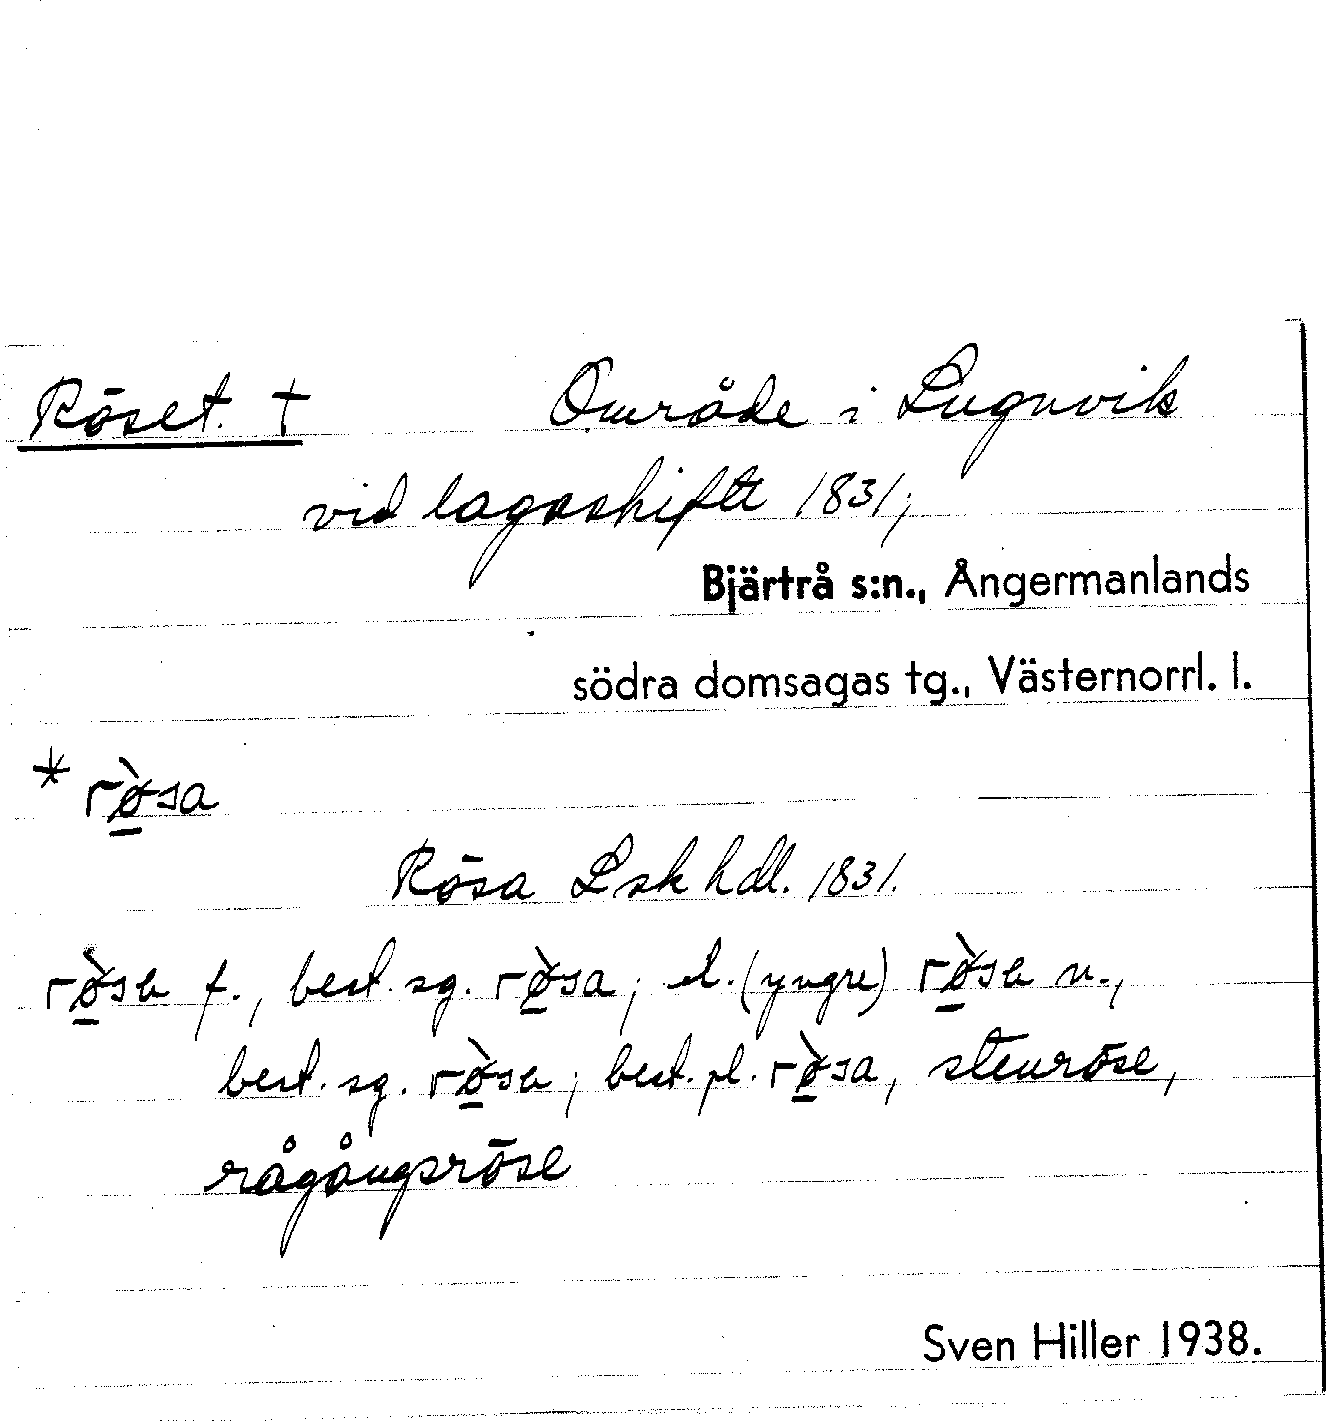 Röset. †   Område i Lugnvik
vid lagaskifte 1831,
Bjärtrå s:n., Ångermanlands
södra domsagas tg., Västernorrl. l.
* rø̀sa
Rösa Lsk hdl. 1831.
rø̀sa f., best. sg. rø̀sa; el. (yngre) rø̀sa n.,
best. sg. rø̀sa; best. pl. rø̀sa, stenröse,
rågångsröse
Sven Hiller 1938.